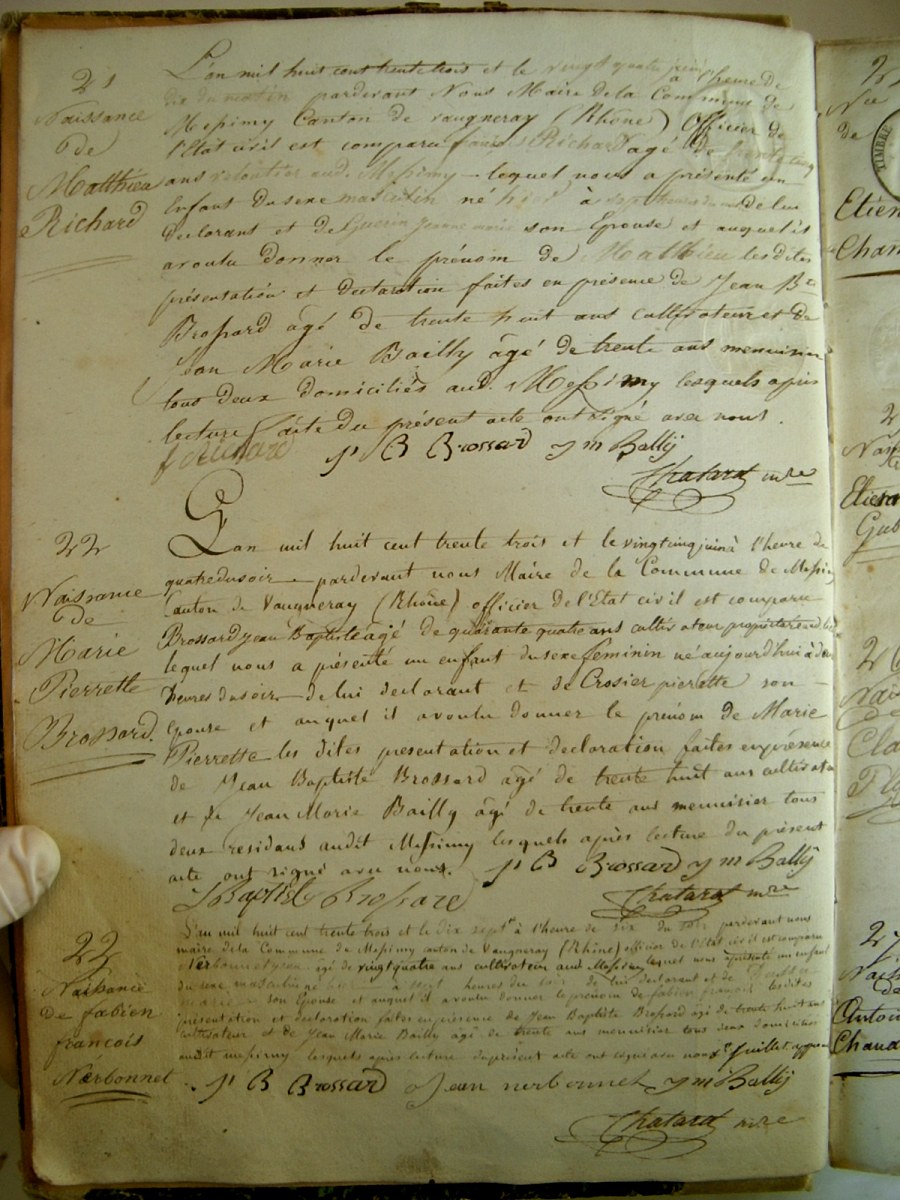 21
Naissance
de
Matthieu
Richard
L'an mil huit cent trente trois et le vingt quatre juin à l'heure de
dix du matin pardevant Nous Maire de la Commune de
Messimy Canton de vaugneray (Rhône) Officier de
l'Etat civil est comparu françois Richard agé de
ans aud. Messimy lequel nous a présenté un
Enfant du sexe masculin né hier à sept heures du de lui
declarant et de Guerin jeanne marie son Epouse et auquel il
a voulu donner le prénom de Matthieu les dites
présentation et declaration faites en présence de Jean Bte
Brossard âgé de trente huit ans cultivateur et de
Jean Marie Bailly âgé de trente ans menuisier
tous deux domiciliés aud. Messimy lesquels après
lecture faite du présent acte ont signé avec nous.
f richard J B Brossard J m Bally
Chatard mre
22
Naissance
de
Marie
Pierrette
Brossard
L'an mil huit cent trente trois et le vingt cinq juin à l'heure de
quatre du soir pardevant nous Maire de la Commune de Messimy
Canton de Vaugneray (Rhône) officier de l'Etat civil est comparu
Brossard jean Baptiste agé de quarante quatre ans cultivateur propriétaire
lequel nous a présenté un enfant du sexe feminin né aujourd'hui à deux
heures du soir de lui declarant et de Crosier pierrette son
epouse et auquel il a voulu donner le prénom de Marie
Pierrette les dites presentation et declaration faites en présence
de Jean Baptiste Brossard âgé de trente huit ans cultivateur
et de Jean Marie Bailly âgé de trente ans menuisier tous
deux residans audit Messimy lesquels après lecture du présent
acte ont signé avec nous. J B Brossard J m Bally
J Baptiste Brossard Chatard mre
23
Naissance
de fabien
françois
Nerbonnet
L'an mil huit cent trente trois et le dix sept à l'heure de six du soir pardevant nous
maire de la Commune de Messimy canton de Vaugneray (Rhône) officier de l'Etat civil est comparu
Nerbonnet jean agé de vingt quatre ans cultivateur aud Messimy lequel nous a présenté un enfant
du sexe masculin né hier à sept heures du soir de lui declarant et de
son Epouse et auquel il a voulu donner le prénom de fabien françois les dites
présentation et declaration faites en présence de Jean Baptiste Brossard agé de trente huit ans
cultivateur et de Jean Marie Bailly agé de trente ans menuisier tous deux domiciliés
audit messimy lesquels après lecture du présent acte ont signé avec nous juillet
J B Brossard Jean nerbonnet J m Bally
Chatard mre
TIMBRE
de
Etien
Chan
Etien
Gub
Cla
27
de
Antoi
Chana